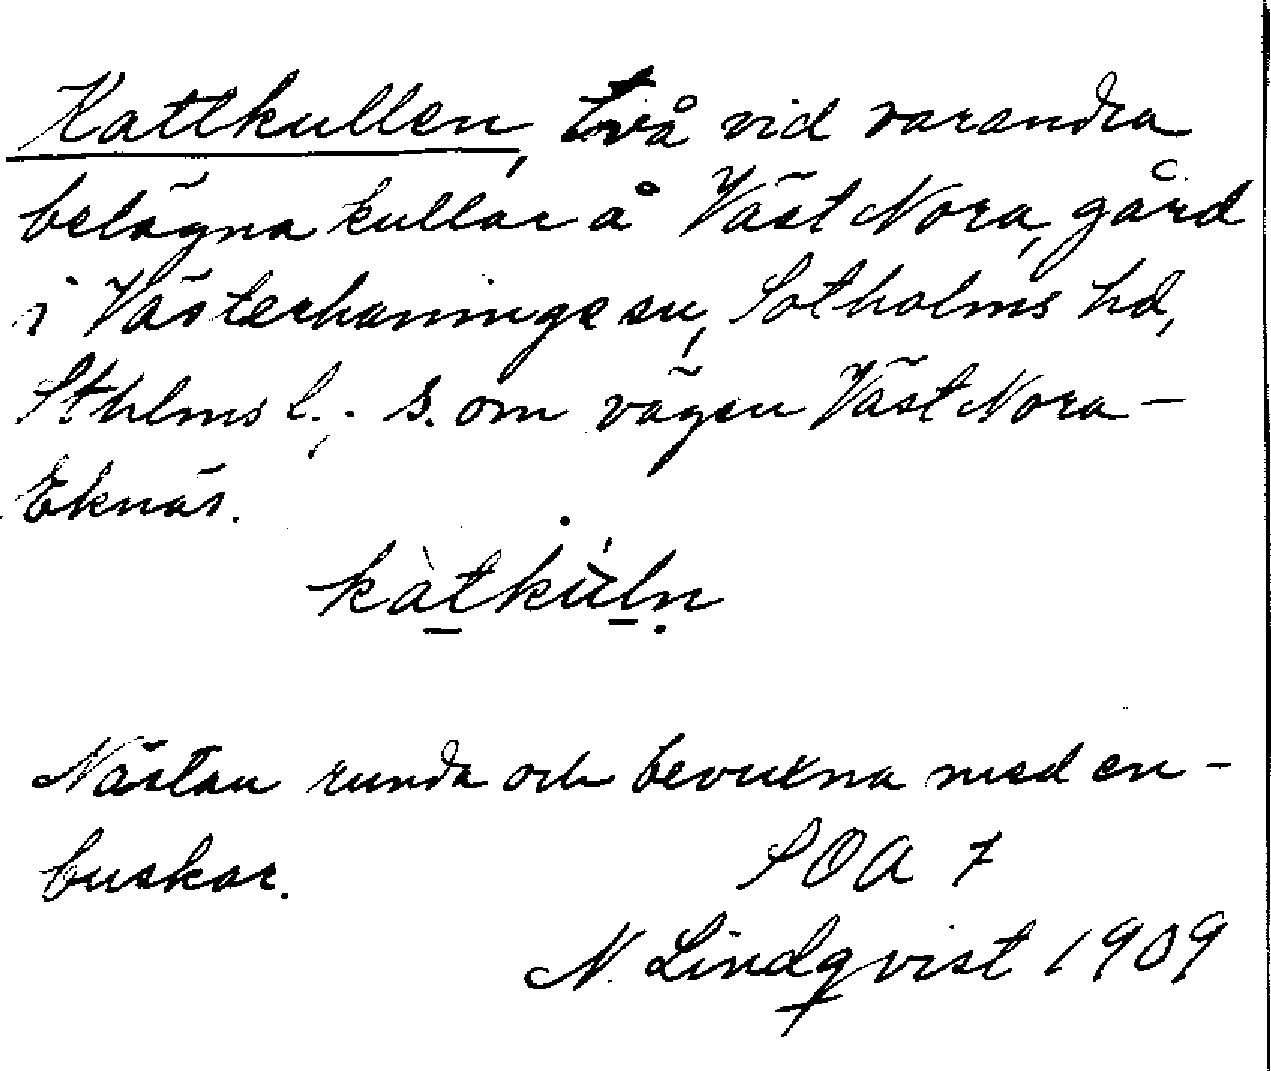 Kattkullen, två vid varandra
belägna kullar å Väst Nora, gård
i Västerhaninge sn, Sotholms hd,
Sthlms l.; S. om vägen Väst Nora -
Eknäs.
kàtkùln
Nästan runda och bevuxna med en-
buskar.
SOA 7
N. Lindqvist 1909